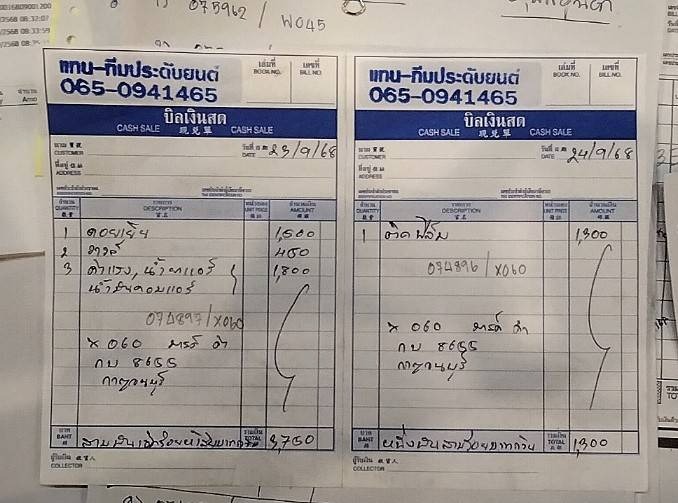 075962 / W045
2568 08:32:07
2568 08:33:59
แทน-ทีมประดับยนต์
065-0941465
เล่มที่
BOOK NO.
เลขที่
BILL NO.
บิลเงินสด
CASH SALE 現兑單 CASH SALE
นาม
CUSTOMER
วันที่
DATE 23/9/68
ที่อยู่
ADDRESS
จำนวน
QUANTITY
รายการ
DESCRIPTION
หน่วยละ
UNIT PRICE
จำนวนเงิน
AMOUNT
1 คอยเย็น 1,500
2 วาล์ว 450
3 ค่าแรง, น้ำยาแอร์ 1,800
น้ำมันคอมแอร์
074897/X060
X 060 สารถี ดำ
กบ 8655
กาญจนบุรี
บาท
BAHT
สามพันเจ็ดร้อยห้าสิบบาทถ้วน
รวมเงิน
TOTAL
3,750
ผู้รับเงิน
COLLECTOR
แทน-ทีมประดับยนต์
065-0941465
เล่มที่
BOOK NO.
เลขที่
BILL NO.
บิลเงินสด
CASH SALE 現兑單 CASH SALE
นาม
CUSTOMER
วันที่
DATE 24/9/68
ที่อยู่
ADDRESS
จำนวน
QUANTITY
รายการ
DESCRIPTION
หน่วยละ
UNIT PRICE
จำนวนเงิน
AMOUNT
1 ติดฟิล์ม 1,300
074896/X060
X 060 ดำ
กบ 8655
กาญจนบุรี
บาท
BAHT
หนึ่งพันสามร้อยบาทถ้วน
รวมเงิน
TOTAL
1,300
ผู้รับเงิน
COLLECTOR